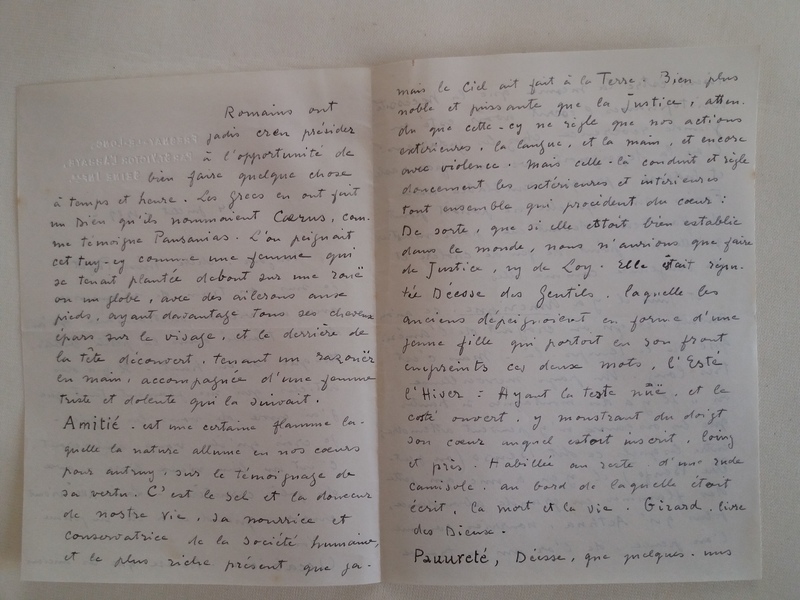 Romains ont
jadis creu présider
à l'opportunité de
bien faire quelque chose
à temps et heure. Les Grecs en ont fait
un Dieu qu'ils nommoient Cærus, com-
me témoigne Pausanias. L'on peignait
cettuy-cy comme une femme qui
se tenait plantée debout sur une rouë
ou un globe, avec des ailerons aux
pieds, ayant davantage tous ses cheveux
épars sur le visage, et le derrière de
la tête découvert, tenant un razouër
en main, accompagnée d'une femme
triste et dolente qui la suivait.
Amitié. est une certaine flamme la-
quelle la nature allume en nos cœurs
pour autruy, sur le témoignage de
sa vertu. C'est le sel et la douceur
de nostre vie, sa nourrice et
conservatrice de la société humaine,
et le plus riche présent que ja-
mais le Ciel ait fait à la Terre. Bien plus
noble et puissante que la Justice; atten-
du que cette-cy ne règle que nos actions
extérieures, la langue, et la main, et encore
avec violence. Mais celle-là conduit et règle
doucement les extérieures et intérieures
tout ensemble qui procèdent du cœur:
De sorte, que si elle estoit bien establie
dans le monde, nous n'aurions que faire
de Justice, ny de Loy. Elle était répu-
tée Déesse des Gentils, laquelle les
anciens dépeignoient en forme d'une
jeune fille qui portoit en son front
empreints ces deux mots, l'Esté
l'Hiver: Ayant la teste nuë, et le
costé ouvert, y monstrant du doigt
son cœur auquel estoit inscrit, loing
et près. Habillée au reste d'une rude
camisole, au bord de laquelle étoit
écrit, la mort et la vie. Girard, livre
des Dieux.
Pauureté, Déesse, que quelques-uns